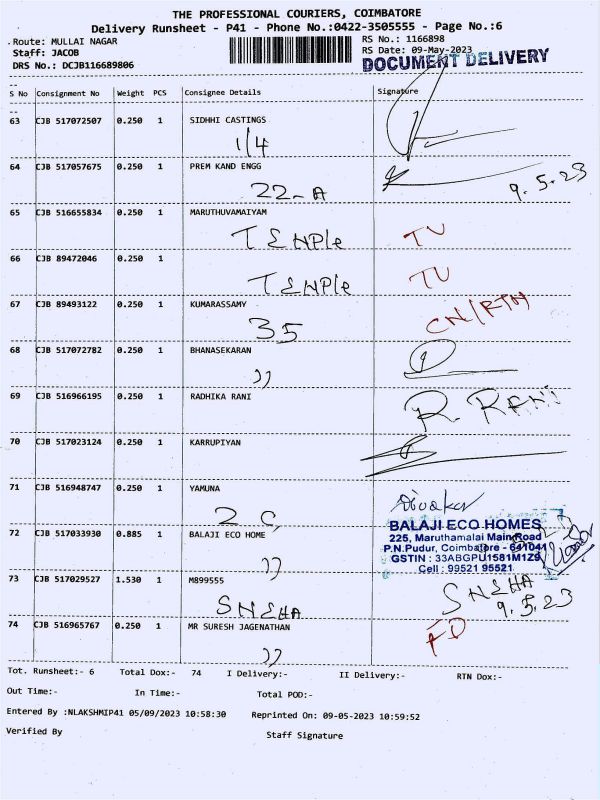 THE PROFESSIONAL COURIERS, COIMBATORE
Delivery Runsheet - P41 - Phone No.:0422-3505555 - Page No.:6
Route: MULLAI NAGAR RS No.: 1166898
Staff: JACOB RS Date: 09-May-2023
DRS No.: DCJB116689806 DOCUMENT DELIVERY
S No Consignment No Weight PCS Consignee Details Signature
63 CJB 517072507 0.250 1 SIDHHI CASTINGS
1/4
64 CJB 517057675 0.250 1 PREM KAND ENGG
22-A 9.5.23
65 CJB 516655834 0.250 1 MARUTHUVAMAIYAM
TEMPle TU
66 CJB 89472046 0.250 1 
TEMPle TU
67 CJB 89493122 0.250 1 KUMARASSAMY
35 CN/RTN
68 CJB 517072782 0.250 1 BHANASEKARAN
))
69 CJB 516966195 0.250 1 RADHIKA RANI
R. RANI
70 CJB 517023124 0.250 1 KARRUPIYAN
71 CJB 516948747 0.250 1 YAMUNA
2 C, Divakar
72 CJB 517033930 0.885 1 BALAJI ECO HOME
))
BALAJI ECO HOMES
225, Maruthamalai Main Road
P.N.Pudur, Coimbatore - 641041
GSTIN : 33ABGPU1581M1Z9
Cell : 99521 95521
73 CJB 517029527 1.530 1 M899555
SNEHA SNEHA
9.5.23
74 CJB 516965767 0.250 1 MR SURESH JAGENATHAN
)) FD
Tot. Runsheet:- 6 Total Dox:- 74 I Delivery:- II Delivery:- RTN Dox:-
Out Time:- In Time:- Total POD:-
Entered By :NLAKSHMIP41 05/09/2023 10:58:30 Reprinted On: 09-05-2023 10:59:52
Verified By Staff Signature